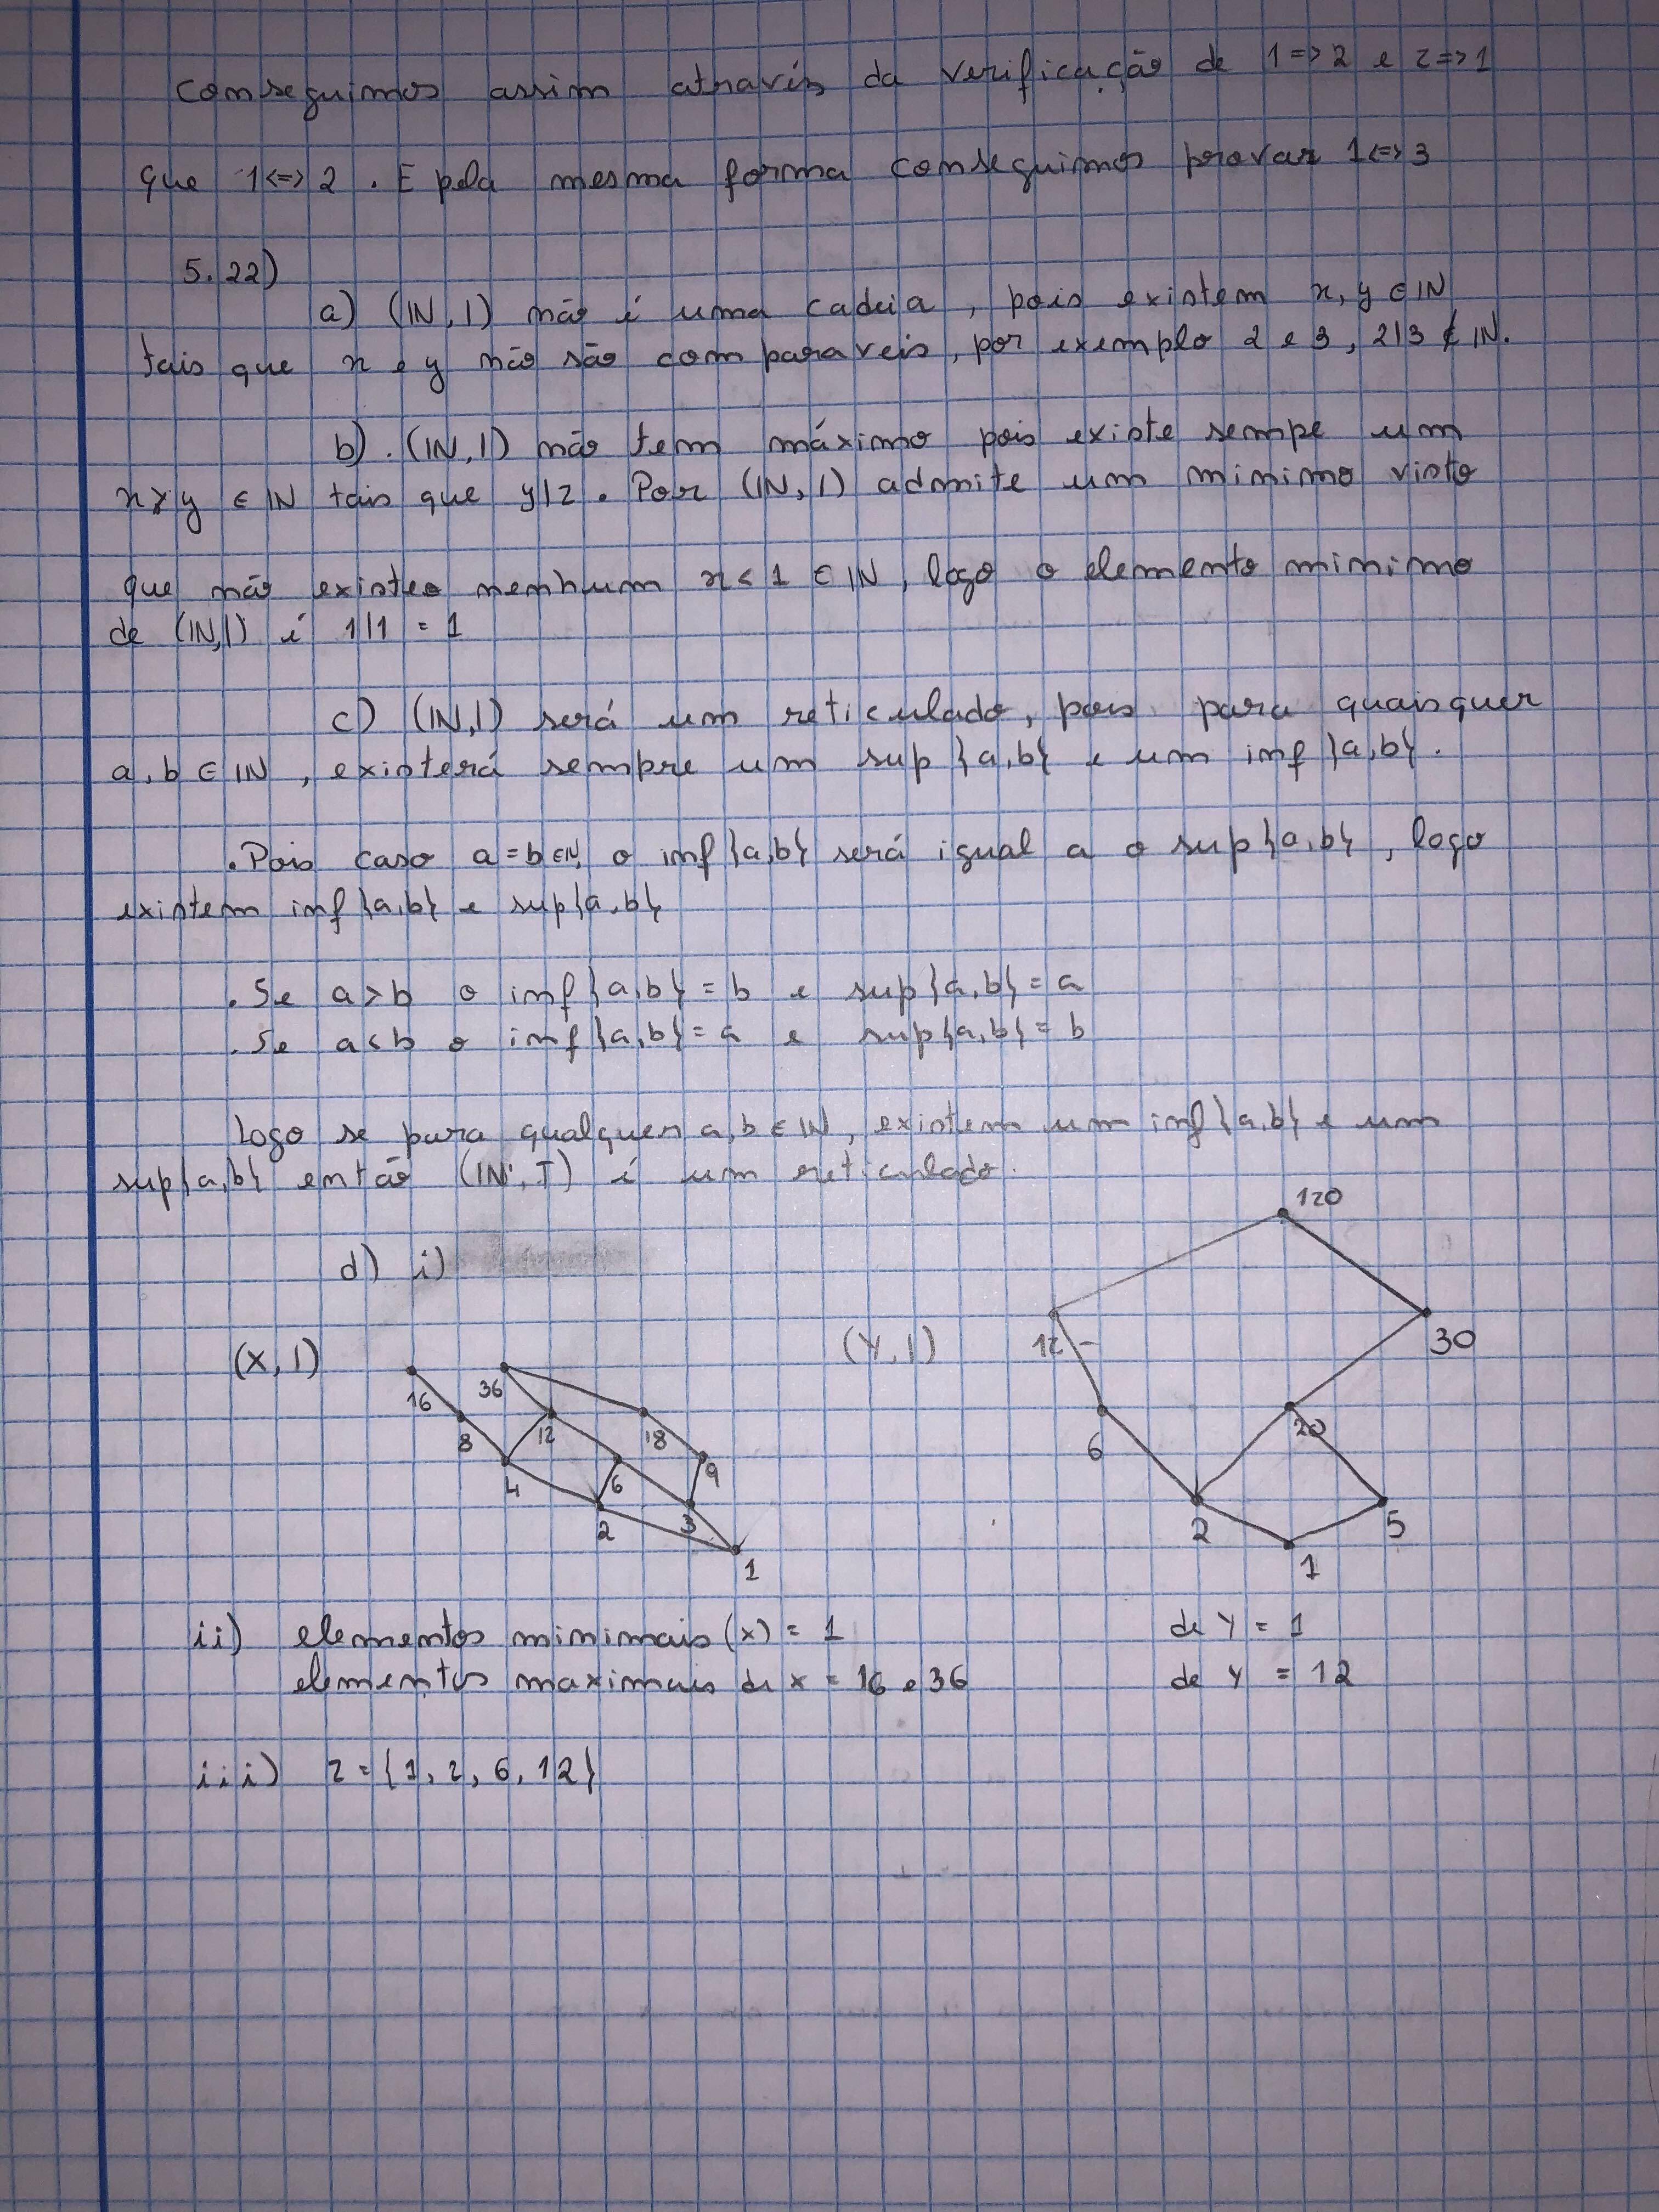 Conseguimos assim através da verificação de 1=>2 e 2=>1
que 1<=>2. E pela mesma forma conseguimos provar 1<=>3
5.22)
a) (IN, |) não é uma cadeia, pois existem x, y ∈ IN
tais que x e y não são comparaveis, por exemplo 2 e 3, 2|3 ∉ IN.
b). (IN, |) não tem máximo pois existe sempe um
y ∈ IN tais que y|z. Por (IN, |) admite um minimo visto
que não existe nenhum x < 1 ∈ IN, logo o elemento minimo
de (IN,|) é 1|1 = 1
c) (IN,|) será um reticulado, pois para quaisquer
a, b ∈ IN, existerá sempre um sup {a,b} e um inf {a,b}.
.Pois caso a=b∈IN, o inf{a,b} será igual a o sup{a,b}, logo
existem inf{a,b} e sup{a,b}
. Se a>b o inf{a,b} = b e sup{a,b} = a
. Se a<b o inf{a,b} = a e sup{a,b} = b
Logo se para qualquer a,b ∈ IN, existem um inf{a,b} e um
sup{a,b} então (IN, |) é um reticulado.
d) i)
(X, |)
16 36
8 12 18
4 6 9
2 3
1
(Y, |)
120
12 30
6 20
2 5
1
ii) elementos minimais (x) = 1 de Y = 1
elementos maximais de x = 16 e 36 de Y = 12
iii) Z = {1, 2, 6, 12}